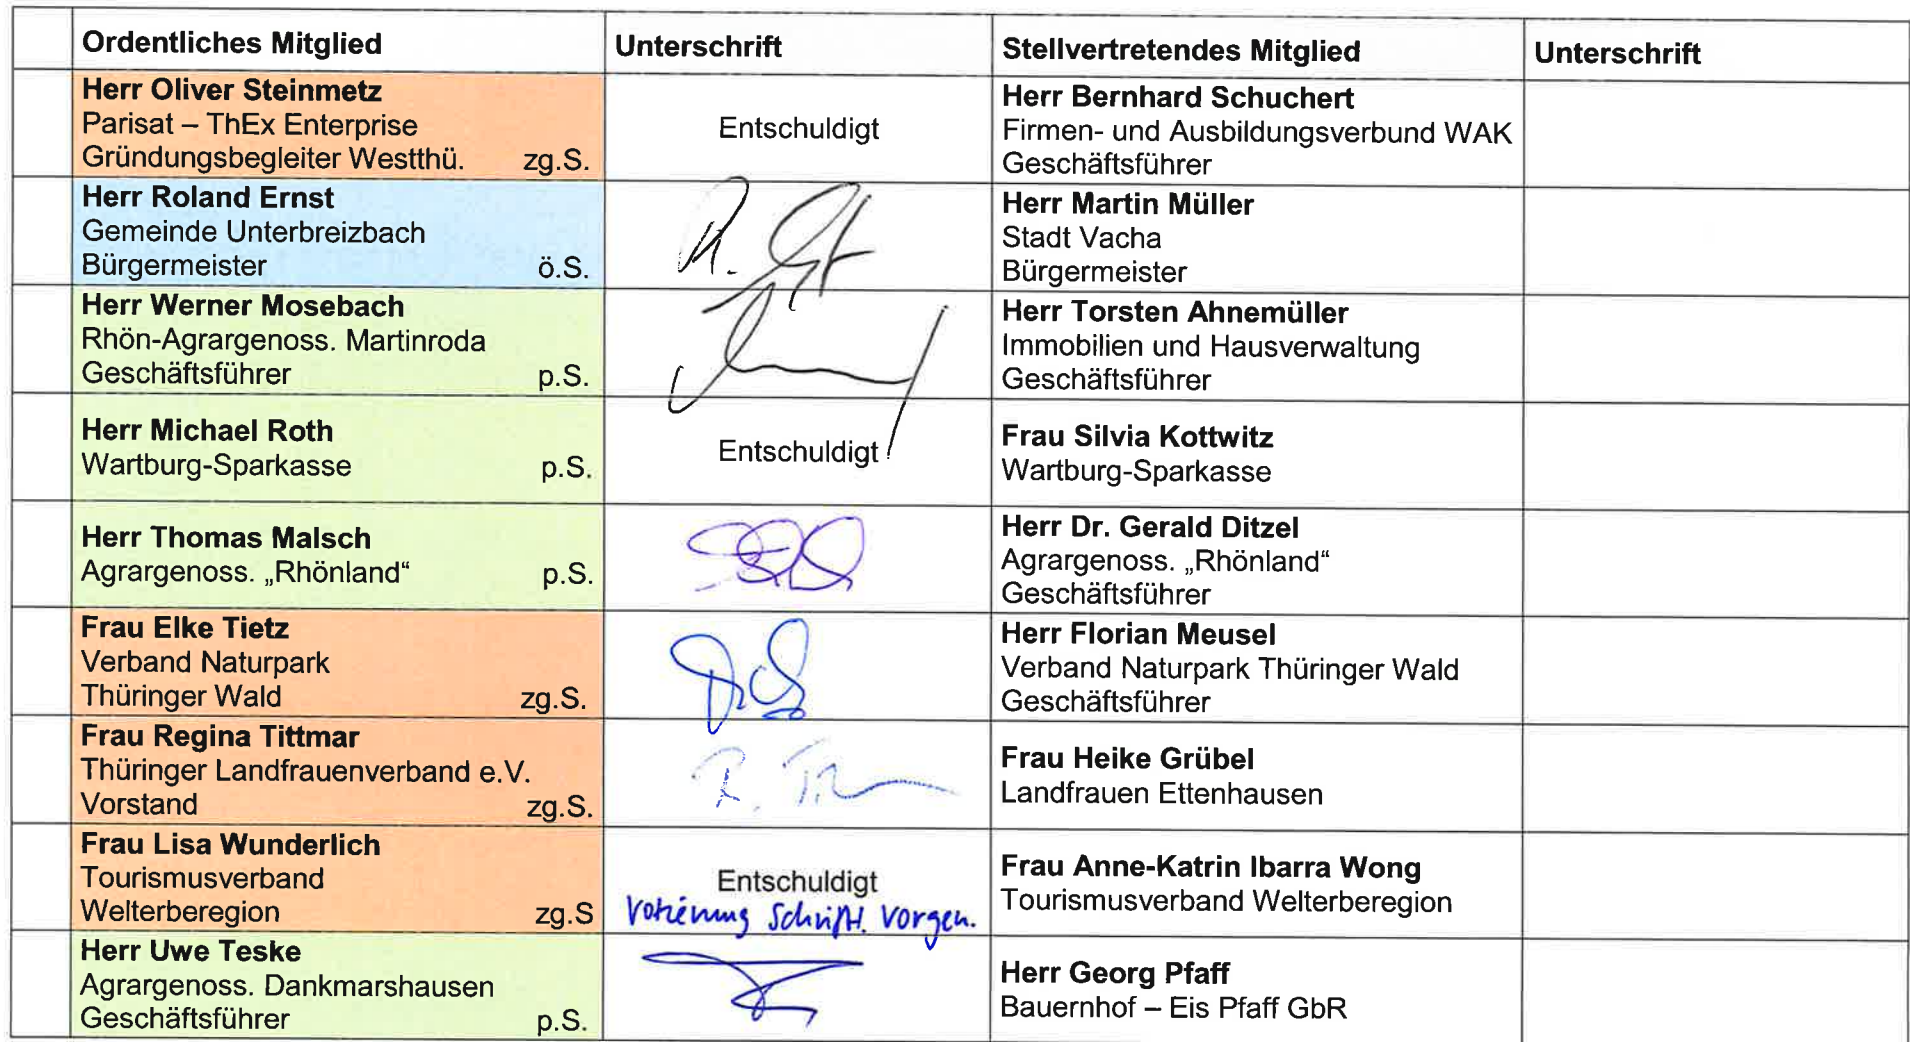 Ordentliches Mitglied Unterschrift Stellvertretendes Mitglied Unterschrift
Herr Oliver Steinmetz
Parisat – ThEx Enterprise
Gründungsbegleiter Westthü. zg.S.
Entschuldigt
Herr Bernhard Schuchert
Firmen- und Ausbildungsverbund WAK
Geschäftsführer
Herr Roland Ernst
Gemeinde Unterbreizbach
Bürgermeister ö.S.
Herr Martin Müller
Stadt Vacha
Bürgermeister
Herr Werner Mosebach
Rhön-Agrargenoss. Martinroda
Geschäftsführer p.S.
Herr Torsten Ahnemüller
Immobilien und Hausverwaltung
Geschäftsführer
Herr Michael Roth
Wartburg-Sparkasse p.S.
Entschuldigt
Frau Silvia Kottwitz
Wartburg-Sparkasse
Herr Thomas Malsch
Agrargenoss. „Rhönland“ p.S.
Herr Dr. Gerald Ditzel
Agrargenoss. „Rhönland“
Geschäftsführer
Frau Elke Tietz
Verband Naturpark
Thüringer Wald zg.S.
Herr Florian Meusel
Verband Naturpark Thüringer Wald
Geschäftsführer
Frau Regina Tittmar
Thüringer Landfrauenverband e.V.
Vorstand zg.S.
Frau Heike Grübel
Landfrauen Ettenhausen
Frau Lisa Wunderlich
Tourismusverband
Welterberegion zg.S
Entschuldigt
Votierung Schriftl. vorgen.
Frau Anne-Katrin Ibarra Wong
Tourismusverband Welterberegion
Herr Uwe Teske
Agrargenoss. Dankmarshausen
Geschäftsführer p.S.
Herr Georg Pfaff
Bauernhof – Eis Pfaff GbR